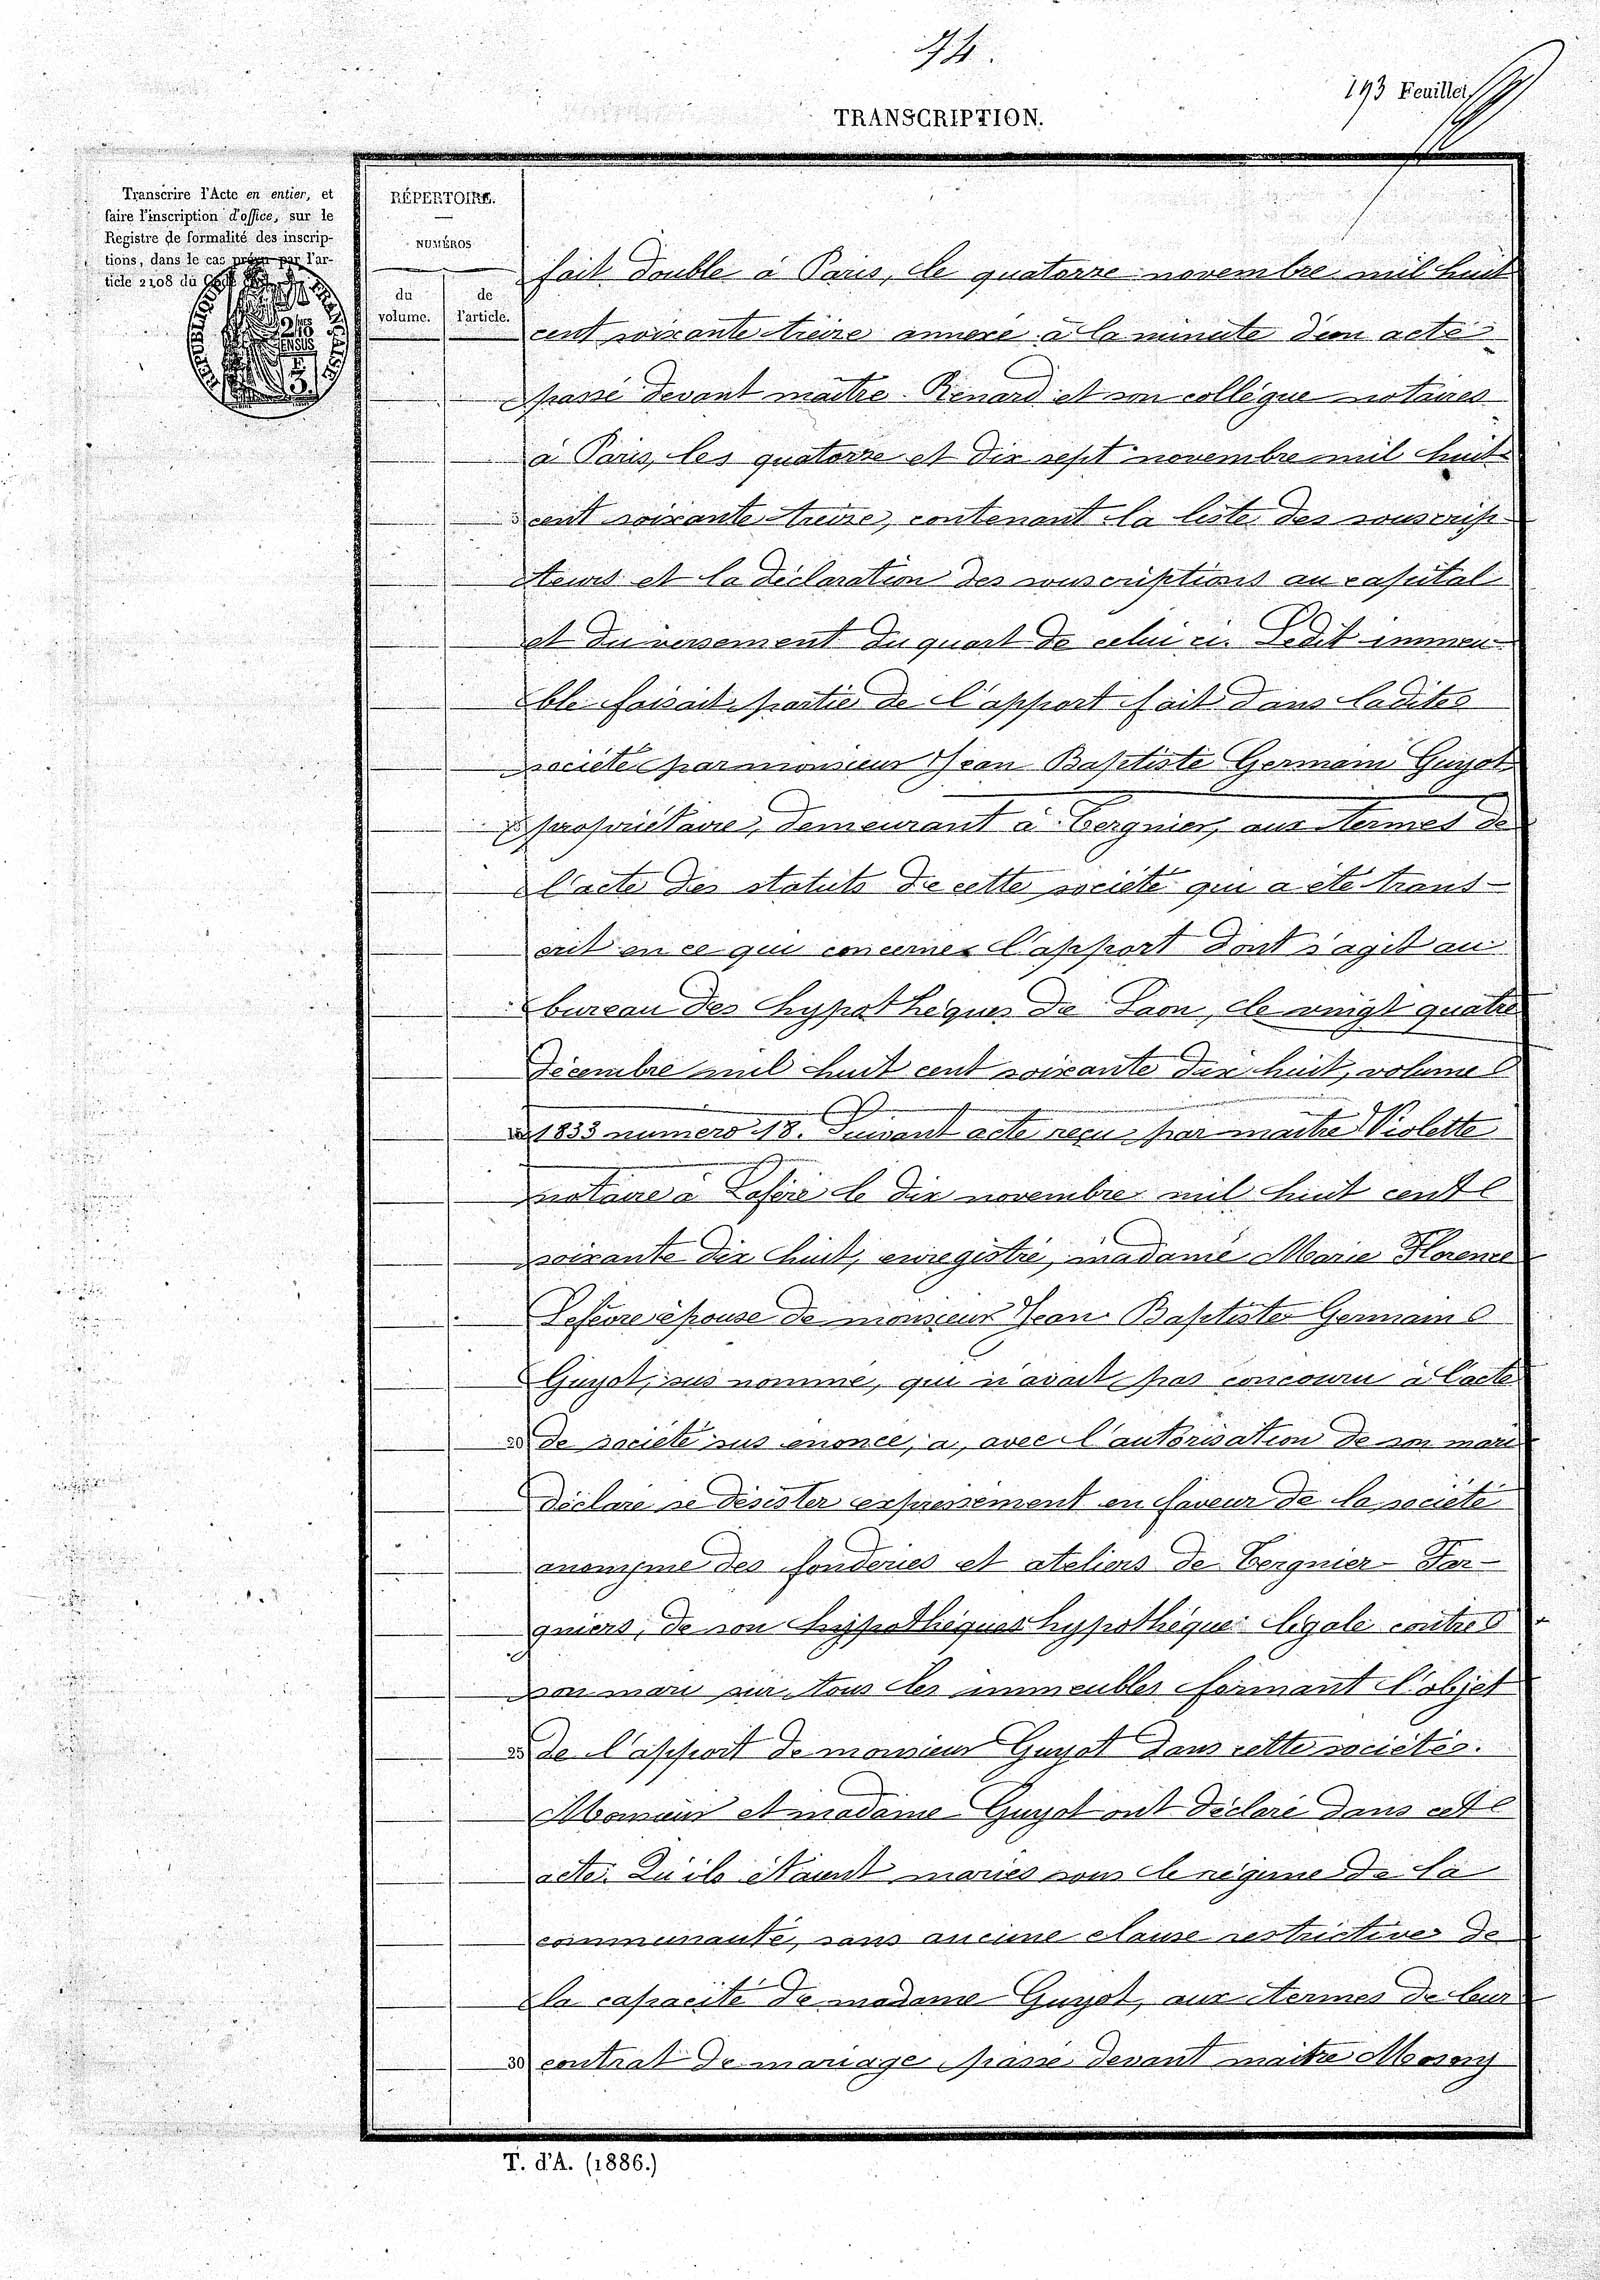 74.
193 Feuillet
TRANSCRIPTION.
Transcrire l'Acte en entier, et
faire l'inscription d'office, sur le
Registre de formalité des inscrip-
tions, dans le cas prévu par l'ar-
ticle 2108 du
RÉPERTOIRE.
NUMÉROS
du volume.
de l'article.
fait double à Paris, le quatorze novembre mil huit
cent soixante treize annexé à la minute d'un acte
passé devant maître Renard et son collègue notaires
à Paris, les quatorze et dix sept novembre mil huit
cent soixante treize, contenant la liste des souscrip-
teurs et la déclaration des souscriptions au capital
et du versement du quart de celui ci. Ledit immeu-
ble faisait partie de l'apport fait dans ladite
société par monsieur Jean Baptiste Germain Guyot
propriétaire, demeurant à Tergnier, aux termes de
l'acte des statuts de cette société qui a été trans-
crit en ce qui concerne l'apport dont s'agit au
bureau des hypothèques de Laon, le vingt quatre
décembre mil huit cent soixante dix huit, volume
1833 numéro 18. Suivant acte reçu par maître Violette
notaire à Lafère le dix novembre mil huit cent
soixante dix huit, enregistré, madame Marie Florence
Lefèvre épouse de monsieur Jean Baptiste Germain
Guyot, sus nommé, qui n'avait pas concouru à l'acte
20 de société sus énoncé, a, avec l'autorisation de son mari
déclaré se désister expressément en faveur de la société
anonyme des fonderies et ateliers de Tergnier-Far-
gniers, de son hypothèques hypothèque légale contre
son mari sur tous les immeubles formant l'objet
25 de l'apport de monsieur Guyot dans cette société.
Monsieur et madame Guyot ont déclaré dans cet
acte: Qu'ils étaient mariés sous le régime de la
communauté, sans aucune clause restrictive de
la capacité de madame Guyot, aux termes de leur
30 contrat de mariage passé devant maître
T. d'A. (1886.)